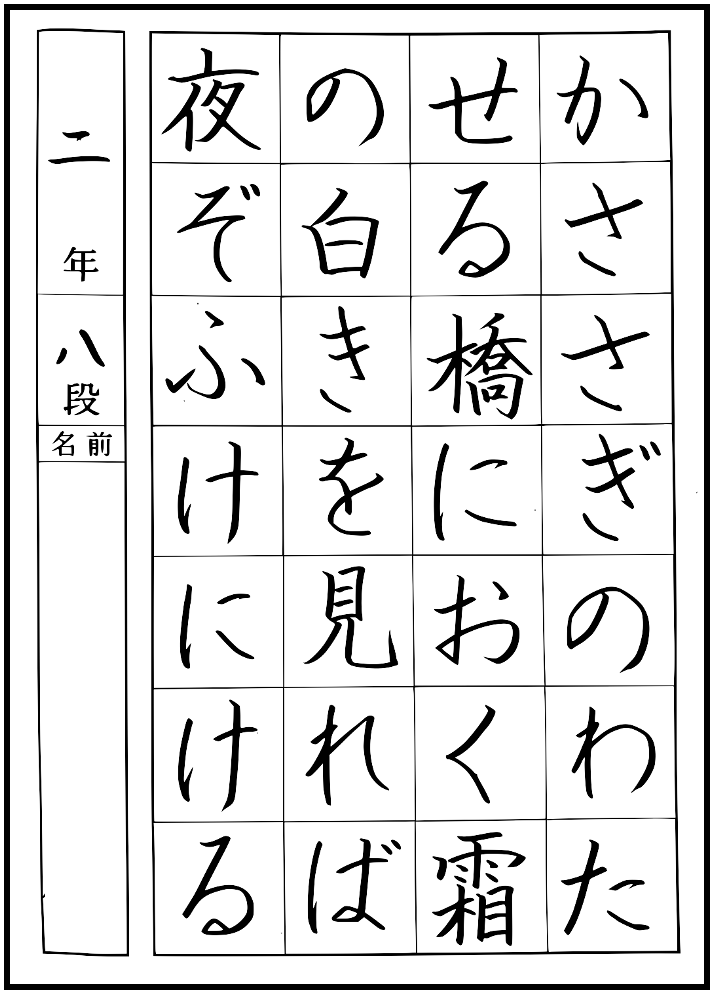 かささぎのわた
せる橋におく霜
の白きを見れば
夜ぞふけにける
二年
八段
名前